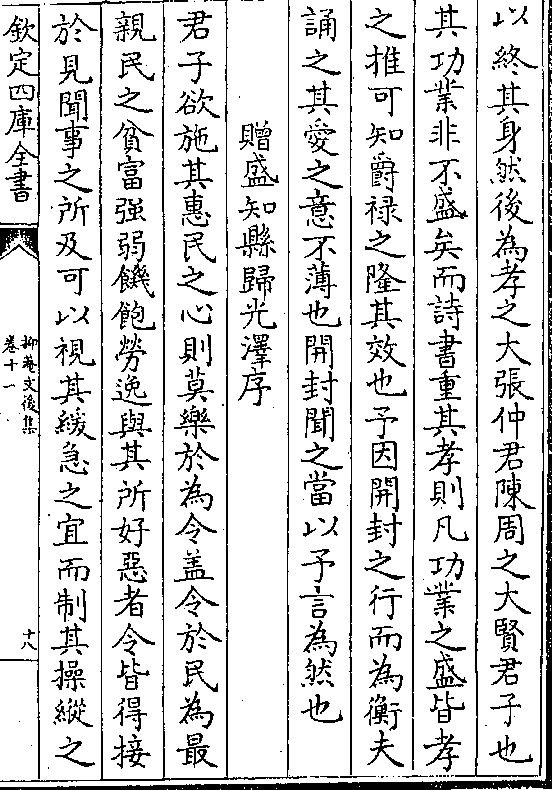 以終其身然後為孝之大張仲君陳周之大賢君子也
其功業非不盛矣而詩書重其孝則凡功業之盛皆孝
之推可知爵禄之隆其效也予因開封之行而為衡夫
誦之其愛之意不薄也開封聞之當以予言為然也
贈盛知縣歸光澤序
君子欲施其惠民之心則莫樂於為令盖令於民為最
親民之貧富強弱饑飽勞逸與其所好惡者令皆得接
於見聞事之所及可以視其緩急之宜而制其操縱之
欽定四庫全書
抑菴文後集
卷十一
十八